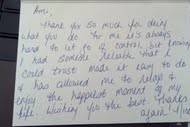 Ami,
Thank you so much for doing
what you do. For me it's always
hard to let go of control, but knowing
I had someone reliable that I
could trust made it easy to do
& has allowed me to relax &
enjoy the happiest moment of my
life. Wishing you the best. Thanks
again!